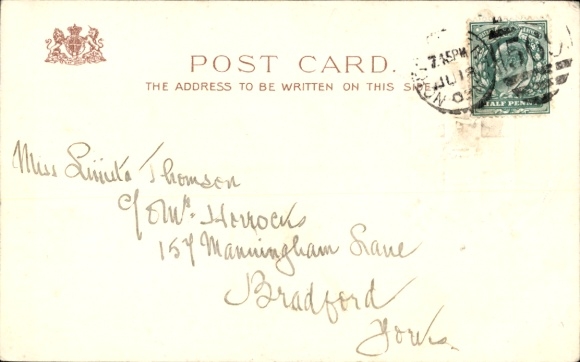 POST CARD.
THE ADDRESS TO BE WRITTEN ON THIS SIDE
7.45PM
HALF PENNY
Miss Thomson
c/o Mrs. Horrocks
157 Manningham Lane
Bradford
Yorks.